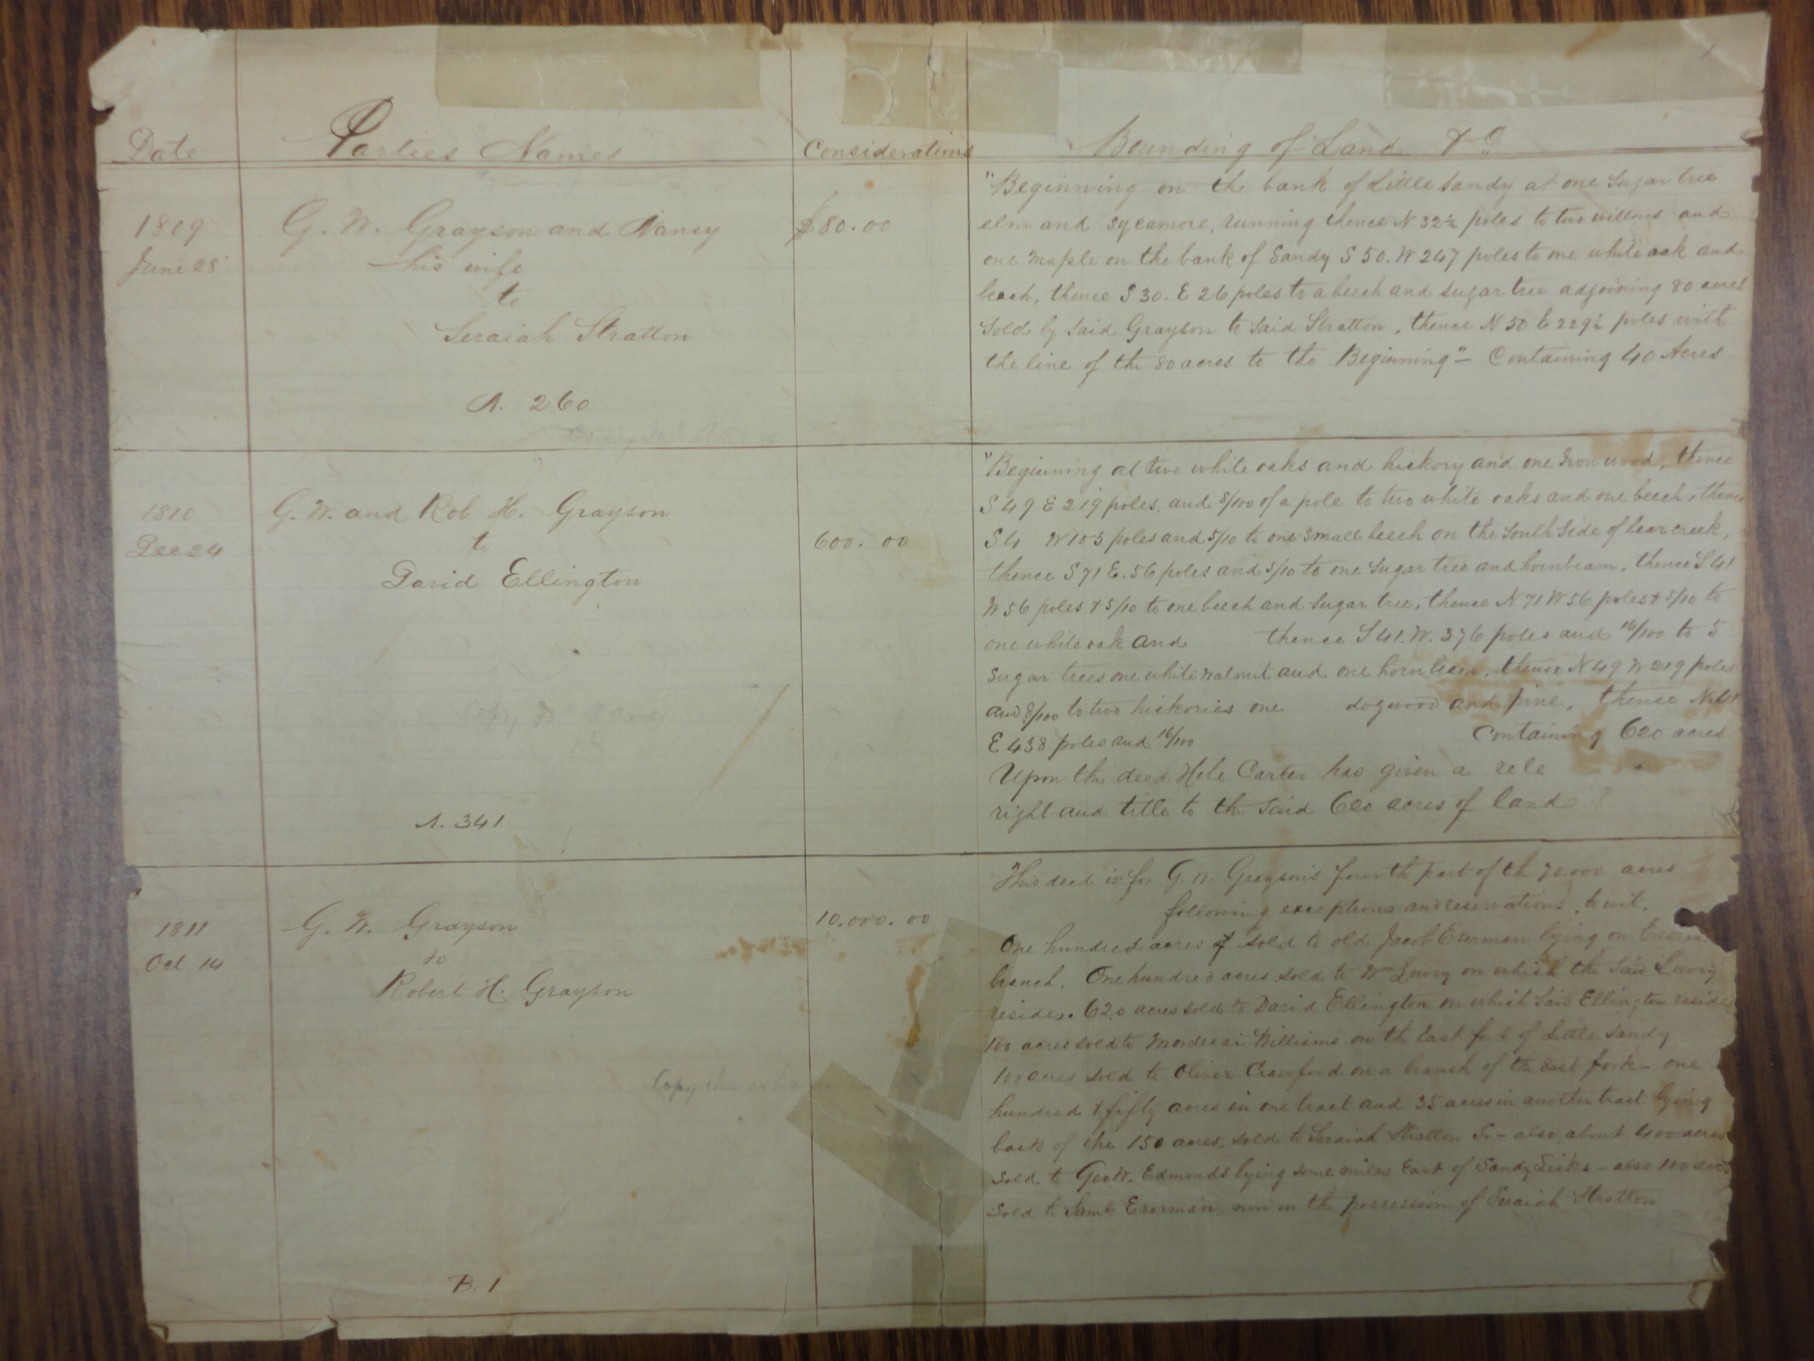 Date
Parties Names
Considerations
Bounding of Land &c
1809
June 28
G. W. Grayson and Nancy
his wife
to
Seraiah Stratton
A. 260
$80.00
"Beginning on the bank of Little Sandy at one Sugar tree
elm and Sycamore, running thence N 32½ poles to two willows and
one maple on the bank of Sandy S 50. W 247 poles to one white oak and
beech, thence S 30. E 26 poles to a beech and sugar tree adjoining 80 acres
sold by said Grayson to said Stratton, thence N 50 E 229½ poles with
the line of the 80 acres to the Beginning" - Containing 40 Acres
1810
Dec 24
G. W. and Rob. H. Grayson
to
David Ellington
A. 341
600.00
"Beginning at two white oaks and hickory and one Iron wood, thence
S 49 E 219 poles, and 8/100 of a pole to two white oaks and one beech, thence
S 4 W 105 poles and 5/10 to one small beech on the South side of bear creek,
thence S 71 E. 56 poles and 5/10 to one Sugar tree and hornbeam, thence S 41
W 56 poles & 5/10 to one beech and Sugar tree, thence N 71 W 56 poles & 5/10 to
one white oak and thence S 41. W. 376 poles and 16/100 to 5
Sugar trees one white walnut and one hornbeam, thence N 49 W 219 poles
and 8/100 to two hickories one dogwood and pine, thence N 41
E 438 poles and 16/100 Containing 620 acres
Upon this deed Hebe Carter has given a rele
right and title to the said 620 acres of land
1811
Oct 14
G. W. Grayson
to
Robert H. Grayson
Copy this
B. 1
10,000.00
This deed is for G. W. Grayson's fourth part of th 70.000 acres
following exceptions and reservations, to wit.
One hundred acres of sold to old Jacob Eserman lying on Eserma
branch. One hundred acres sold to Wm Lowry on which the said Lowry
resides. 620 acres sold to David Ellington on which said Ellington reside
100 acres sold to Mordecai Williams on the East fork of Little Sandy
100 acres sold to Oliver Crawford on a branch of the East fork - one
hundred & fifty acres in one tract and 35 acres in another tract lying
back of the 150 acres, sold to Seraiah Stratton Sr - also about 400 acres
sold to Geo W. Edmonds lying some miles East of Sandy Licks - also 100 acres
sold to Saml Eserman now in the possession of Seraiah Stratton